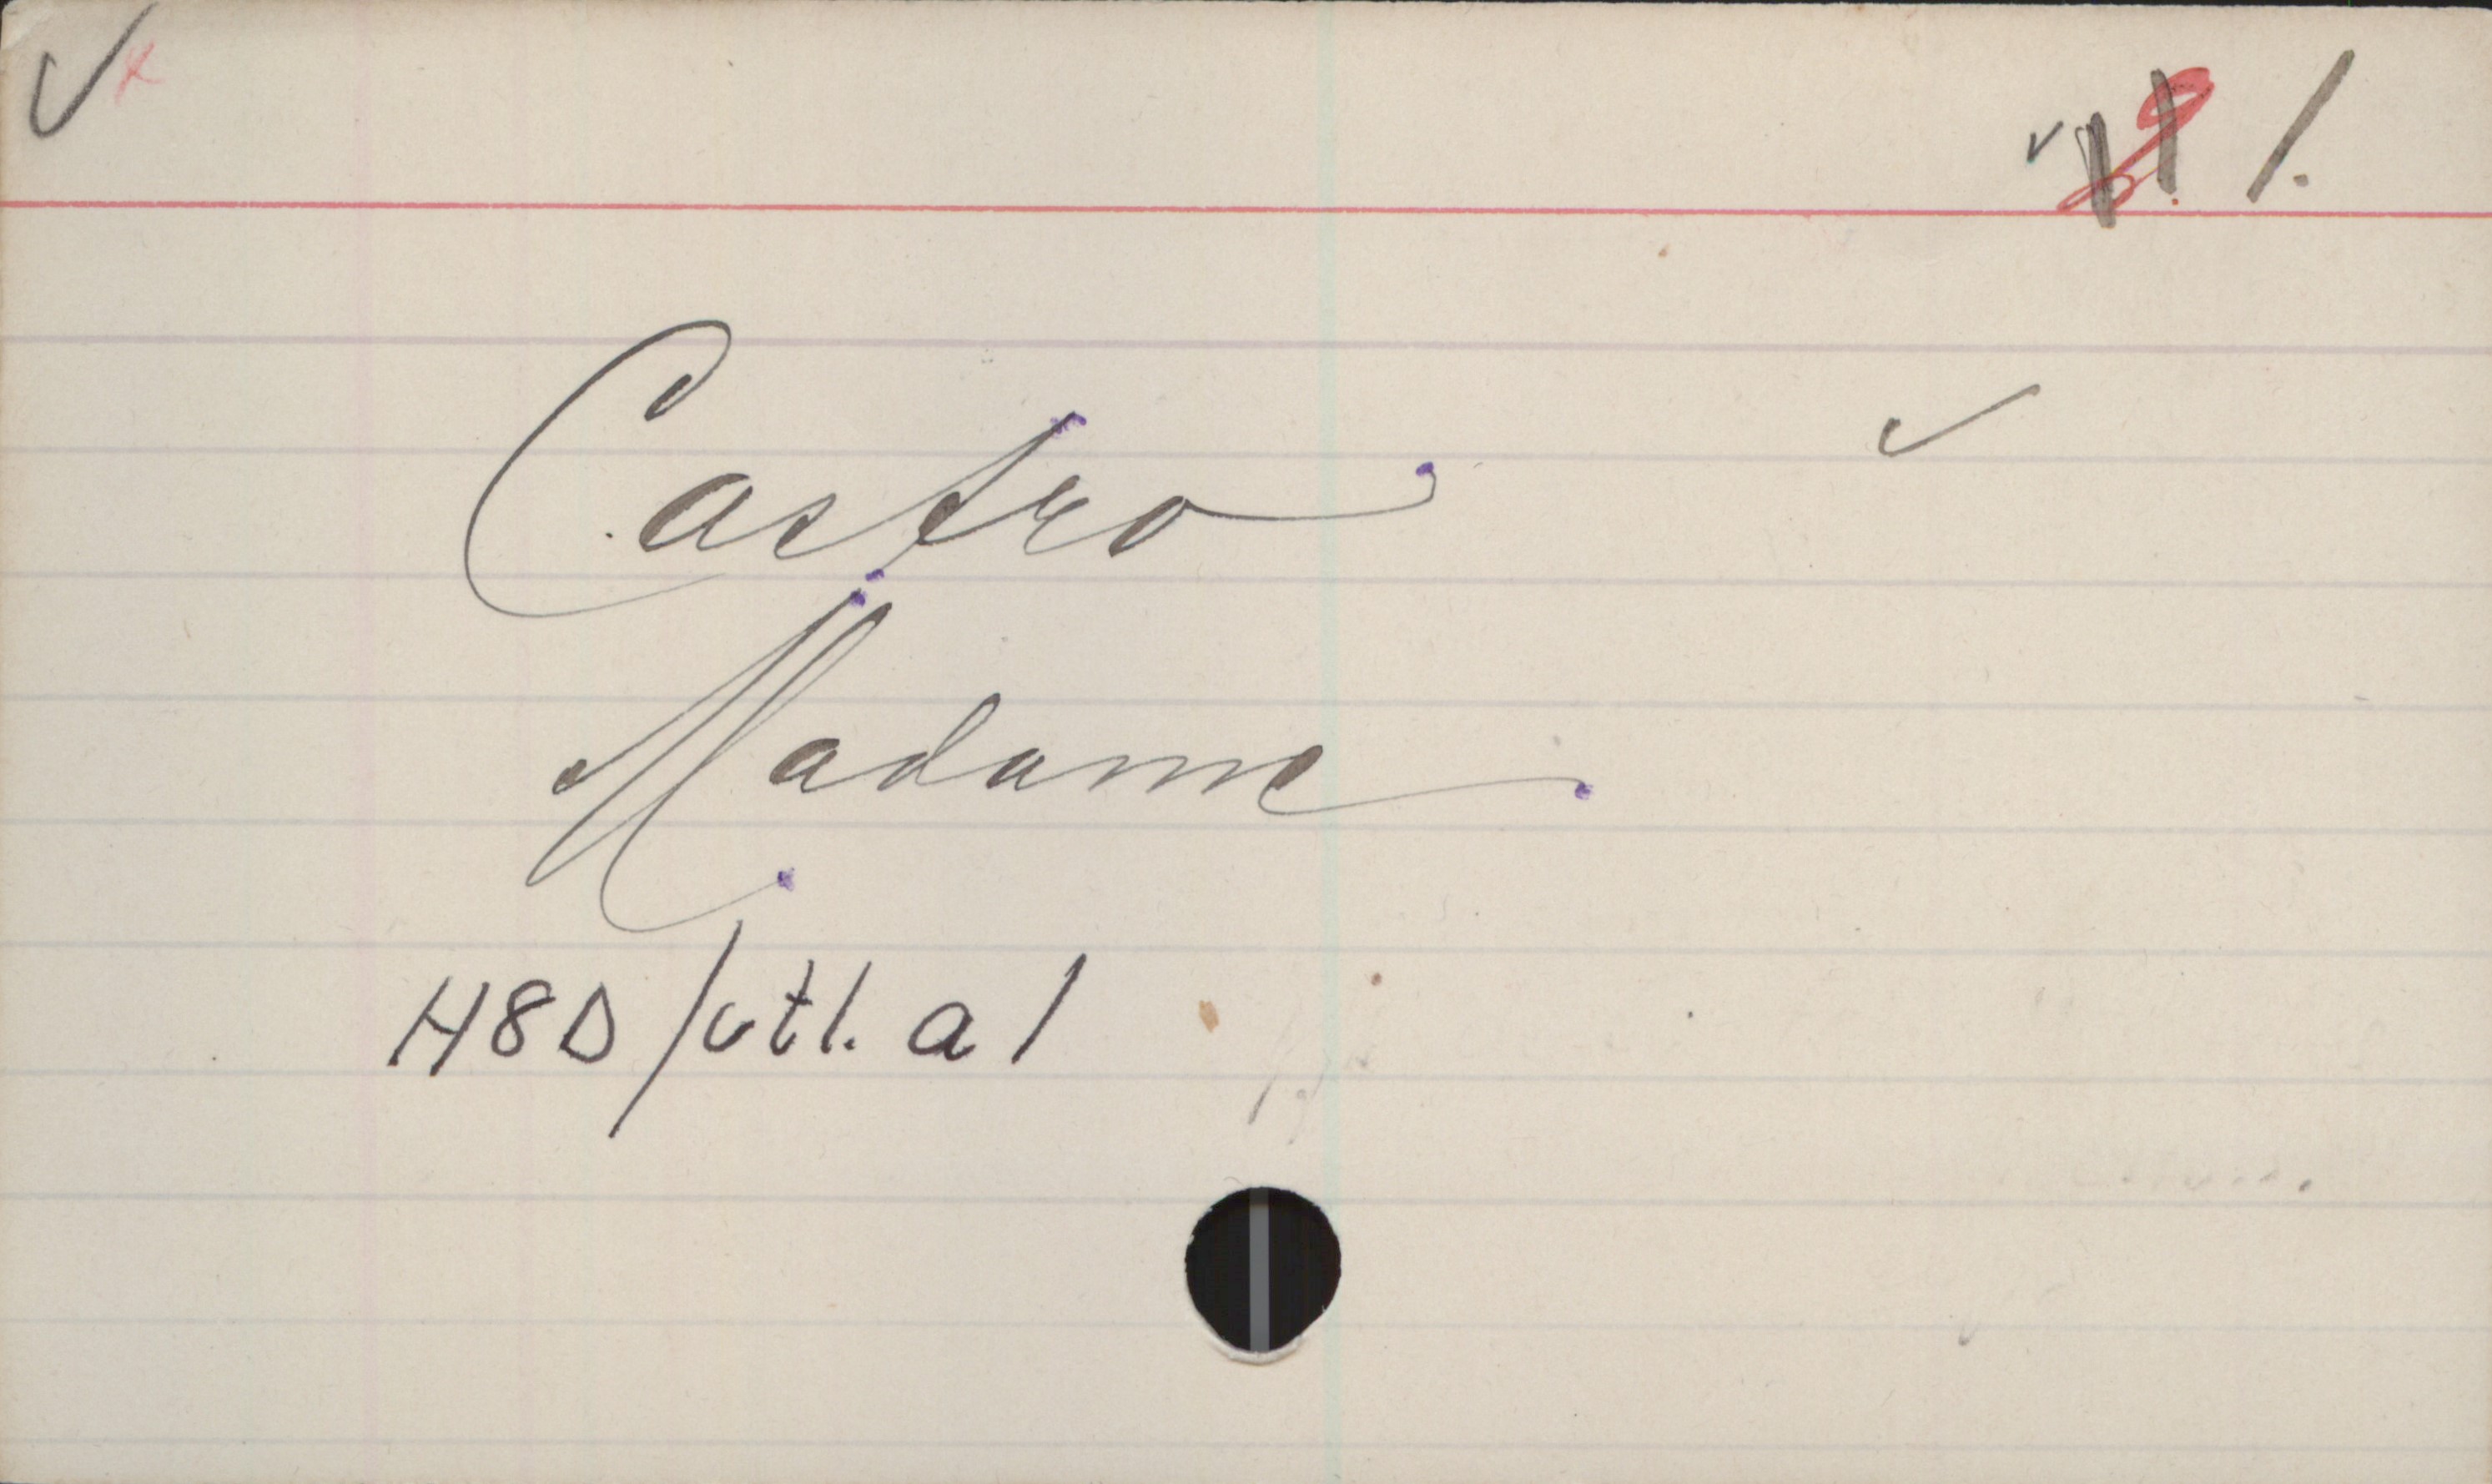 1.
Castro
Madame
H8D/utl. a 1